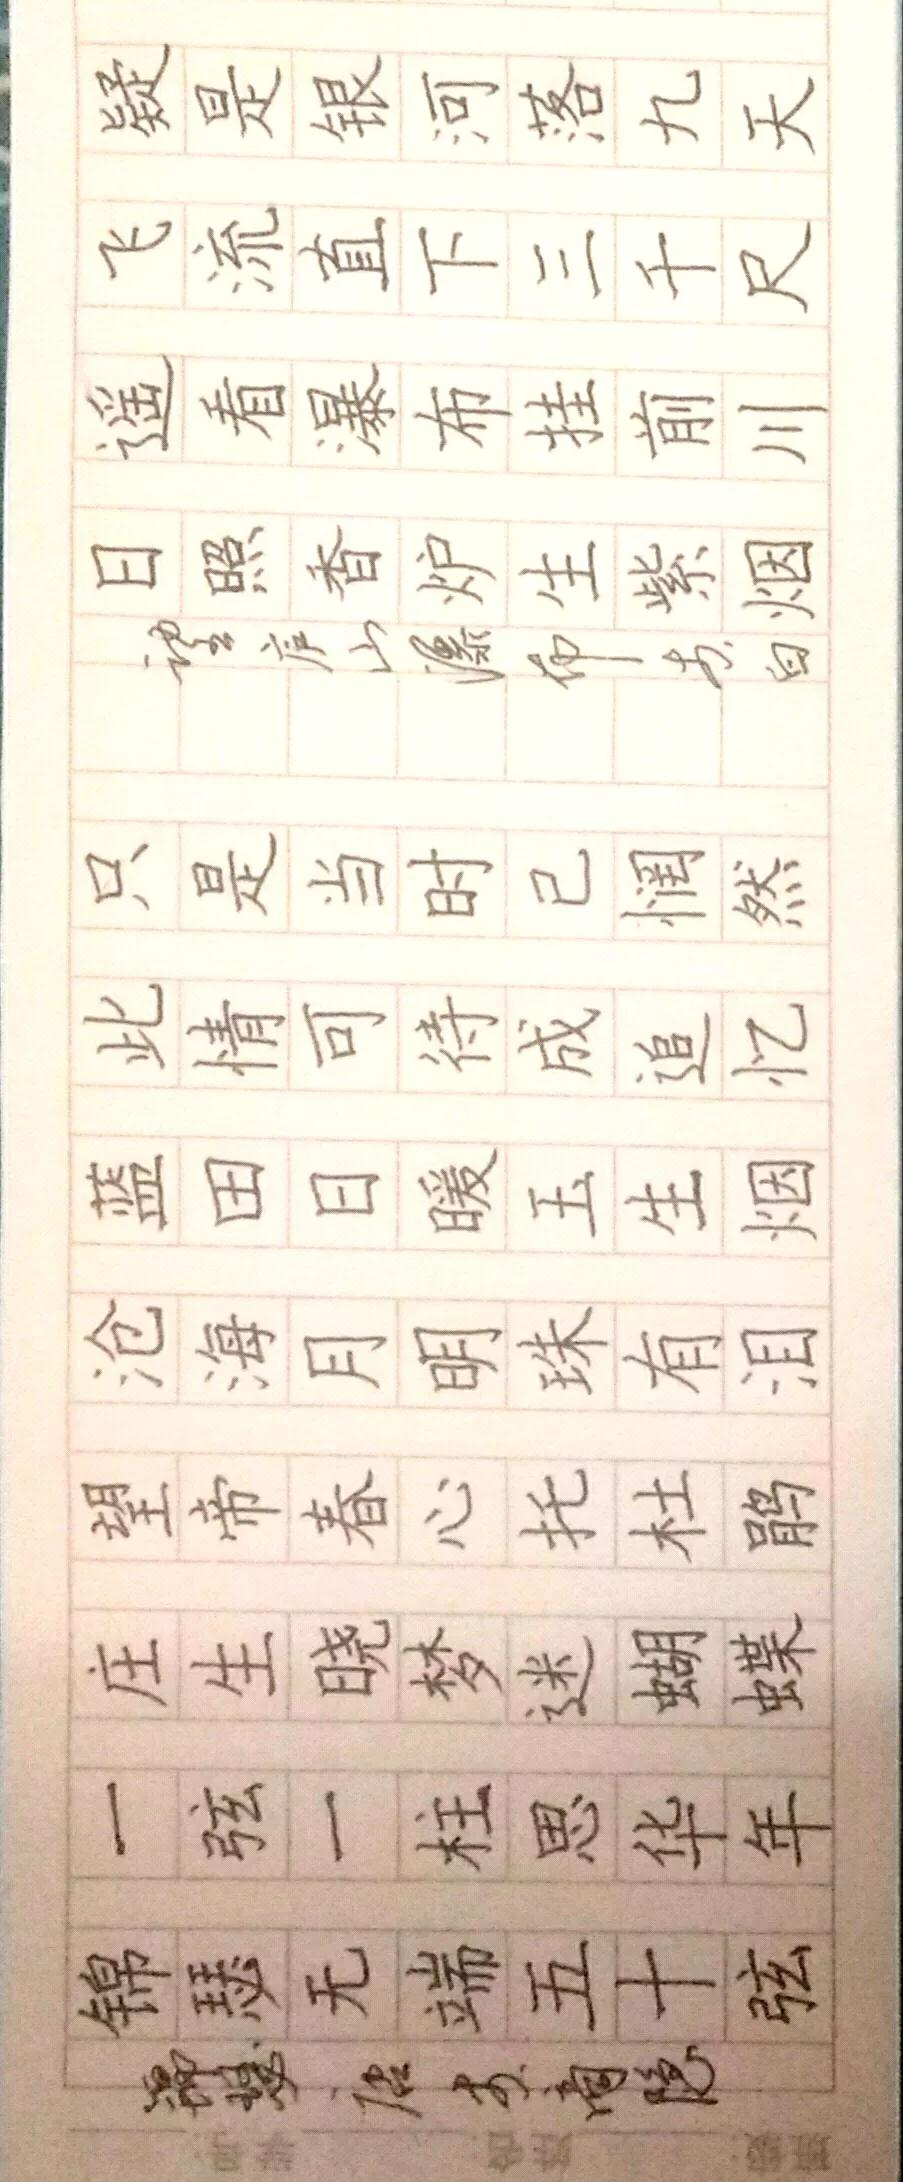 班级: 姓名: 学号:
锦瑟 唐 李商隐
锦瑟无端五十弦
一弦一柱思华年
庄生晓梦迷蝴蝶
望帝春心托杜鹃
沧海月明珠有泪
蓝田日暖玉生烟
此情可待成追忆
只是当时已惘然
望庐山瀑布 李白
日照香炉生紫烟
遥看瀑布挂前川
飞流直下三千尺
疑是银河落九天